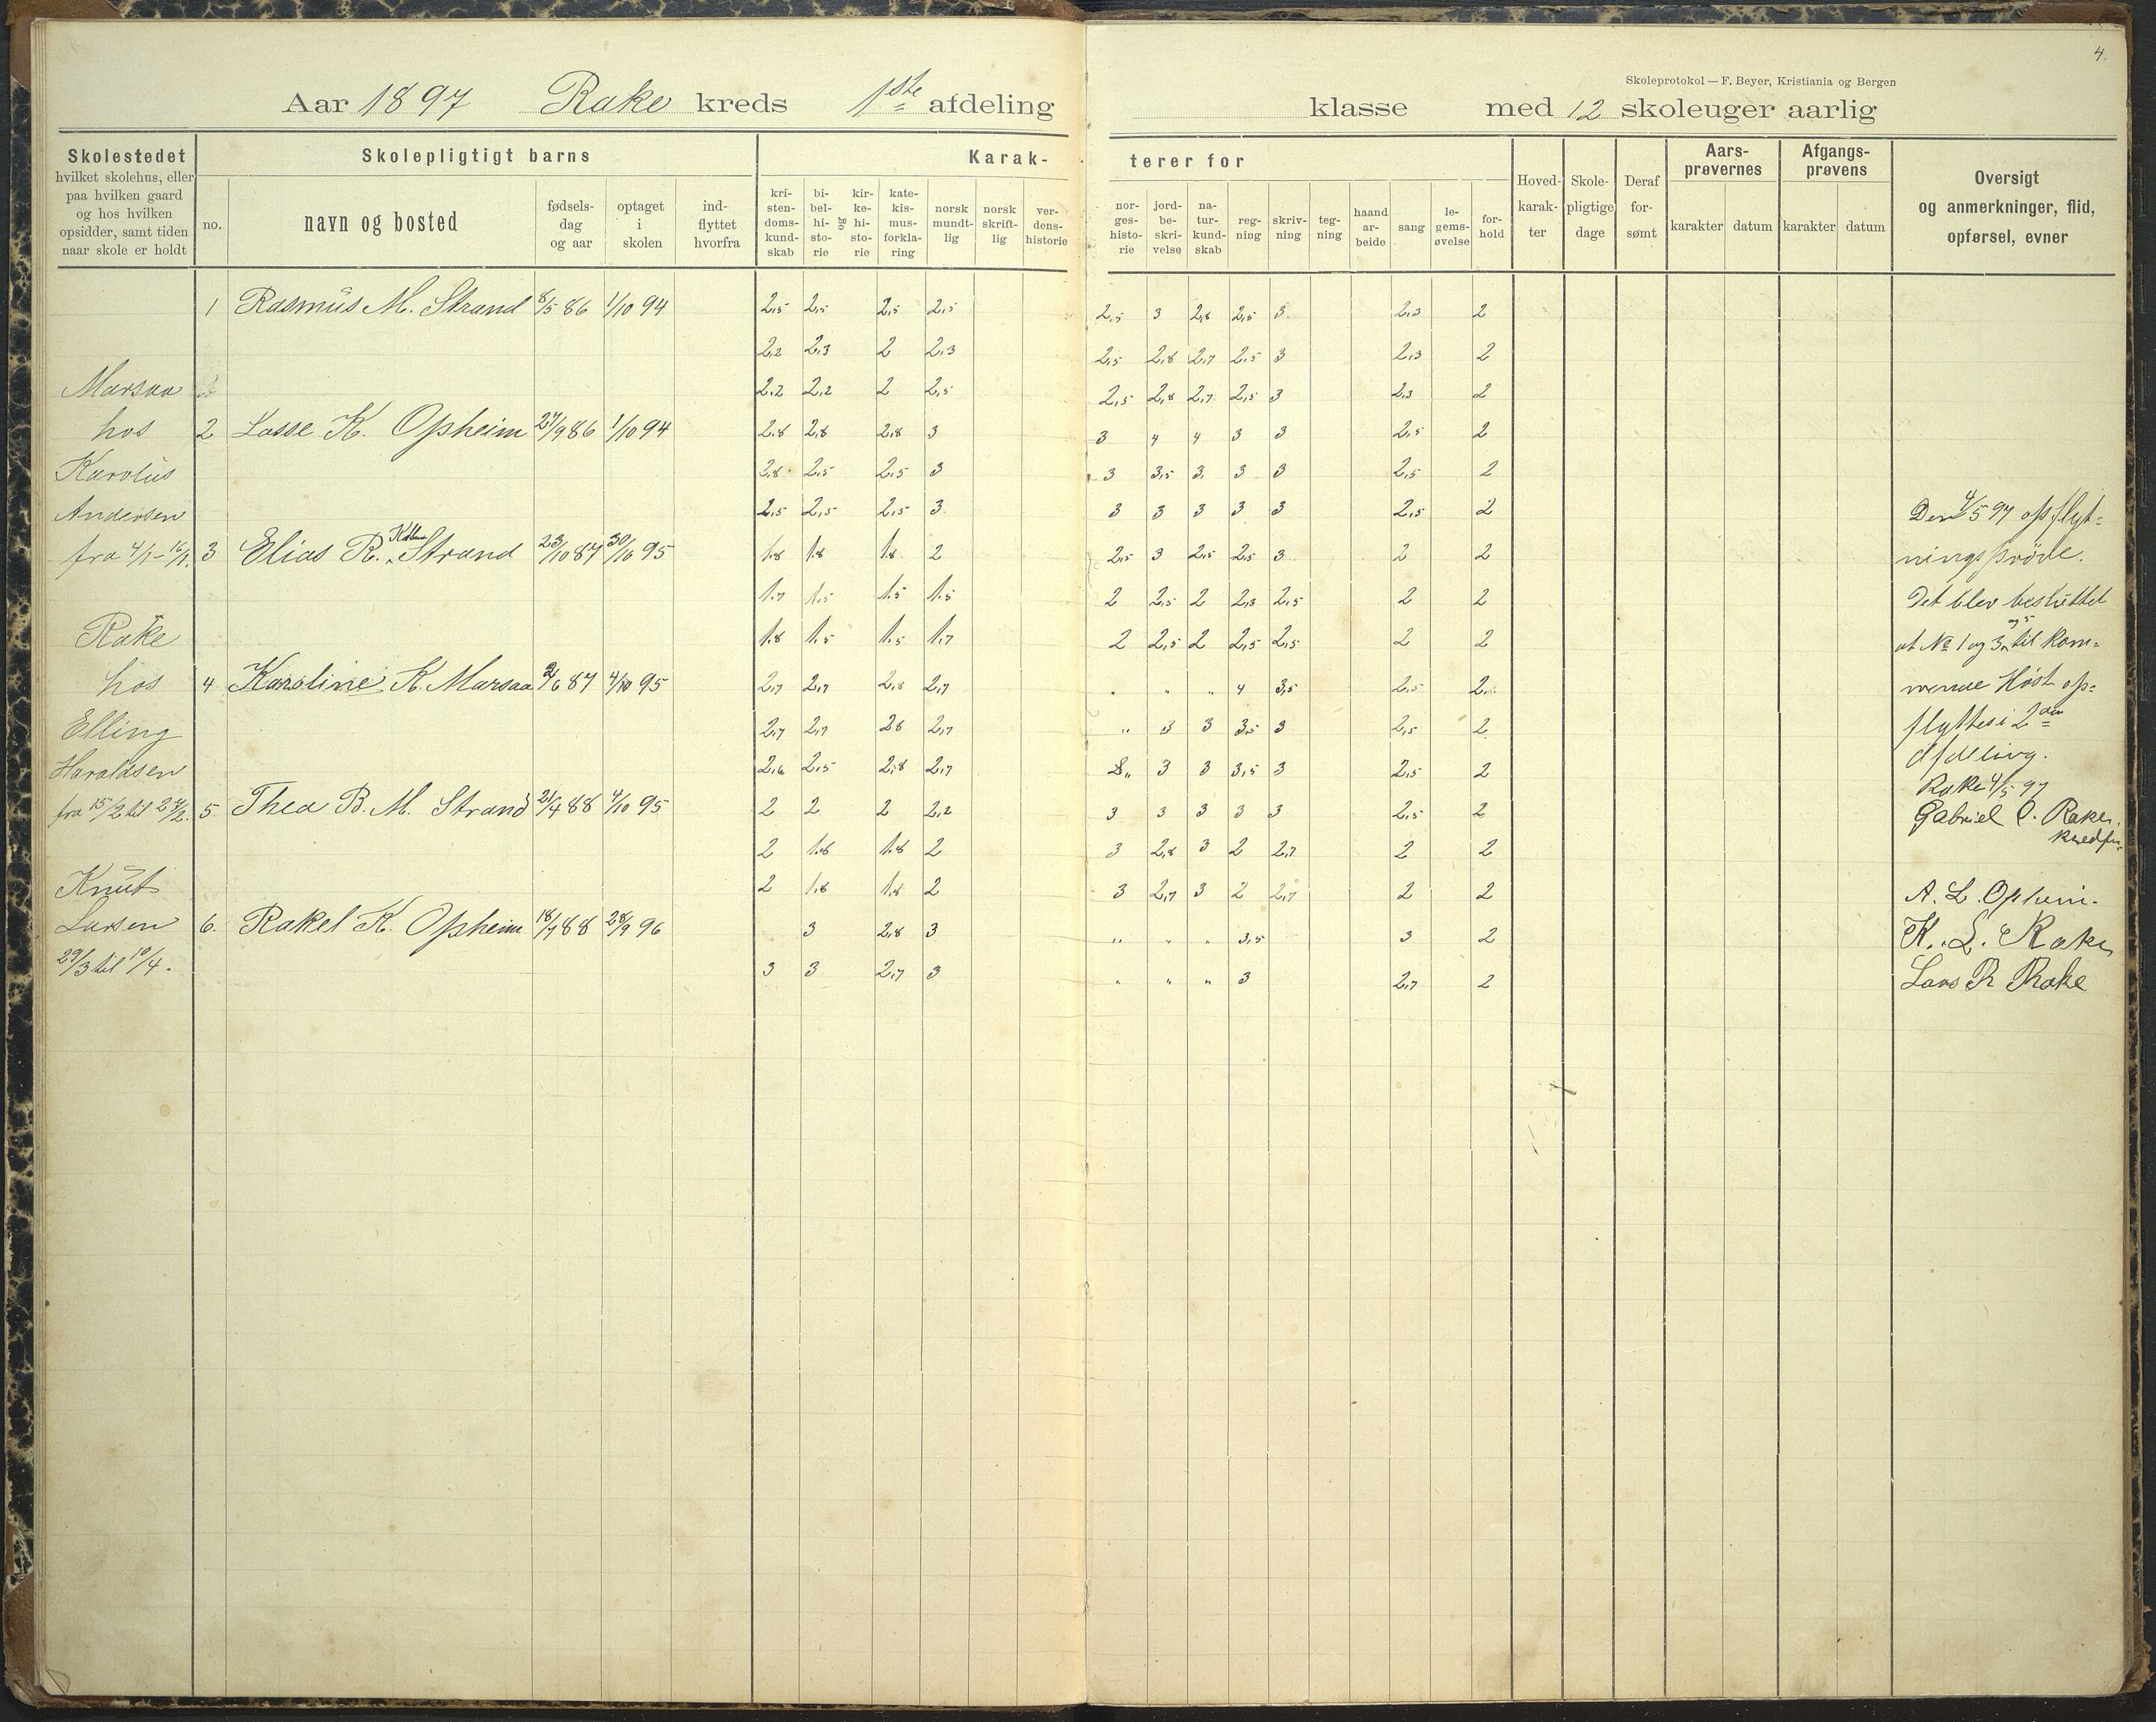 4.
Skoleprotokol — F. Beyer, Kristiania og Bergen
Aar 1897 Rake kreds 1ste afdeling klasse med 12 skoleuger aarlig
Skolestedet
hvilket skolehus, eller
paa hvilken gaard
og hos hvilken
opsidder, samt tiden
naar skole er holdt
Skolepligtigt barns
no.
navn og bosted
fødsels-
dag
og aar
optaget
i
skolen
ind-
flyttet
hvorfra
Karak-
terer for
kri-
sten-
doms-
kund-
skab
bi-
bel-
hi-
sto-
rie
og
kir-
ke-
hi-
sto-
rie
kate-
kis-
mus-
forkla-
ring
norsk
mundt-
lig
norsk
skrift-
lig
ver-
dens-
historie
nor-
ges-
histo-
rie
jord-
be-
skri-
velse
na-
tur-
kund-
skab
reg-
ning
skriv-
ning
teg-
ning
haand
ar-
beide
sang
le-
gems-
øvelse
for-
hold
Hoved-
karak-
ter
Skole-
pligtige
dage
Deraf
for-
sømt
Aars-
prøvernes
karakter datum
Afgangs-
prøvens
karakter datum
Oversigt
og anmerkninger, flid,
opførsel, evner
1 Rasmus M. Strand 8/5 86 1/10 94 2,5 2,5 2,5 2,5 2,5 3 2,8 2,5 3 2,3 2
2,2 2,3 2 2,3 2,5 2,8 2,7 2,5 3 2,3 2
Marsaa 2,2 2,2 2 2,5 2,5 2,8 2,7 2,5 3 2,3 2
hos 2 Lasse K. Opheim 27/9 86 1/10 94 2,8 2,8 2,8 3 3 4 4 3 3 2,5 2
Karolus 2,8 2,5 2,5 3 3 3,5 3 3 3 2,5 2
Andersen 2,5 2,5 2,5 3 3 3 3 3 3 2,5 2
fra 4/1 - 16/1. 3 Elias R. Strand 23/10 87 30/10 95 1,8 1,8 1,8 2 2,5 3 2,5 2,5 3 2 2
1,7 1,5 1,5 1,5 2 2,5 2 2,3 2,5 2 2
Rake 1,8 1,5 1,5 1,7 2 2,5 2 2,5 2,5 2 2
hos 4 Karoline K. Marsaa /6 87 4/10 95 2,7 2,7 2,8 2,7 " " " 4 3,5 2,5 2
Elling 2,7 2,7 2,8 2,7 " 3 3 3,5 3 2,5 2
Haraldsen 2,6 2,5 2,8 2,7 " 3 3 3,5 3 2,5 2
fra 15/2 til 27/2. 5. Thea B. M. Strand 21/4 88 4/10 95 2 2 2 2,2 3 3 3 3 3 2,5 2
2 1,8 1,8 2 3 2,8 3 2 2,7 2 2
Knut 2 1,8 1,8 2 3 2,7 3 2 2,7 2 2
Larsen 6. Rakel K. Opheim 18/7 88 28/9 96 3 2,8 3 " " " 3,5 3 2
29/3 til 10/4. 3 3 2,7 3 " " " 3 2,7 2
Den 4/5 97 opflyt=
ningsprøve.
Det blev besluttet
at No 1 og 3 og 5 til kom=
mende Høst op=
flyttes i 2den
afdeling.
Rake 4/5 97
Gabriel O. Rake.
A. L. Opheim.
K. L. Rake
Lars R Rake